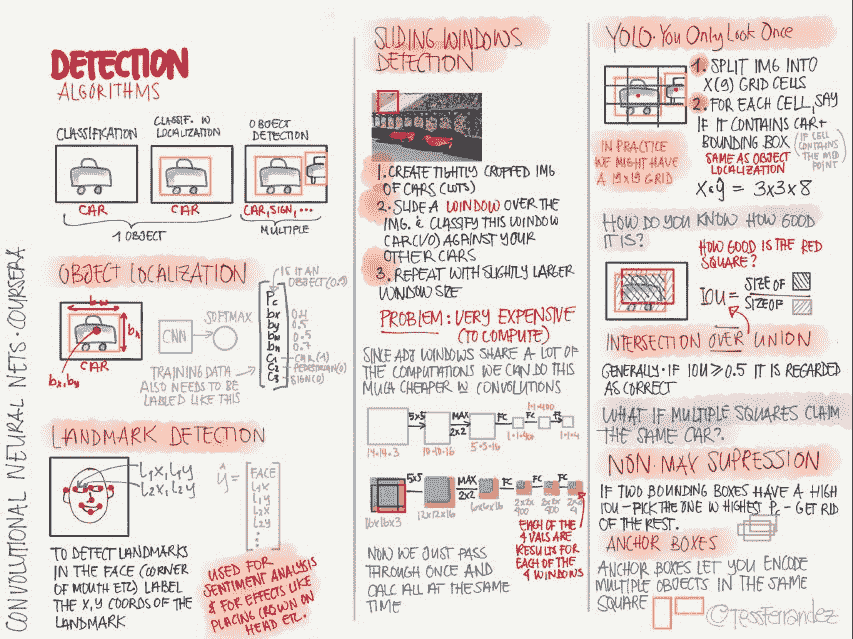 CONVOLUTIONAL NEURAL NETS · COURSERA
DETECTION
ALGORITHMS
CLASSIFICATION
CLASSIF. W
LOCALIZATION
OBJECT
DETECTION
CAR
CAR
CAR, SIGN, ...
1 OBJECT
MULTIPLE
OBJECT LOCALIZATION
bw
bh
bx,by
CAR
CNN
SOFTMAX
IS IT AN
OBJECT (0.9)
Pc
bx
by 0.5
bw 0.5
bh 0.7
C1 CAR (1)
C2 PEDESTRIAN (0)
C3 SIGN (0)
TRAINING DATA
ALSO NEEDS TO BE
LABELED LIKE THIS
LANDMARK DETECTION
L1X, L1Y
L2X, L2Y
ŷ =
FACE
L1X
L1Y
L2X
L2Y
⋮
TO DETECT LANDMARKS
IN THE FACE (CORNER
OF MOUTH ETC) LABEL
THE X,Y COORDS OF THE
LANDMARK
USED FOR
SENTIMENT ANALYSIS
& FOR EFFECTS LIKE
PLACING CROWN ON
HEAD ETC.
SLIDING WINDOWS
DETECTION
1. CREATE TIGHTLY CROPPED IMG
OF CARS (LOTS)
2. SLIDE A WINDOW OVER THE
IMG. & CLASSIFY THIS WINDOW
CAR (1/0) AGAINST YOUR
OTHER CARS
3. REPEAT WITH SLIGHTLY LARGER
WINDOW SIZE
PROBLEM: VERY EXPENSIVE
(TO COMPUTE)
SINCE ADJ WINDOWS SHARE A LOT OF
THE COMPUTATIONS WE CAN DO THIS
MUCH CHEAPER W CONVOLUTIONS
5x5 MAX 2x2 FC FC FC
14·14·3 10·10·16 5·5·16 1·1·400 1·1·400 1·1·4
5x5 MAX 2x2 FC FC FC
16x16x3 12x12x16 6x6x16 2x2x400 2x2x400 2x2x4
EACH OF THE
4 VALS ARE
RESULTS FOR
EACH OF THE
4 WINDOWS
NOW WE JUST PASS
THROUGH ONCE AND
CALC ALL AT THE SAME
TIME
YOLO · You Only Look Once
1. SPLIT IMG INTO
X(9) GRID CELLS
2. FOR EACH CELL, SAY
IF IT CONTAINS CAR +
BOUNDING BOX (IF CELL CONTAINS THE MID POINT)
SAME AS OBJECT
LOCALIZATION
IN PRACTICE
WE MIGHT HAVE
A 19x19 GRID
X & ŷ = 3x3x8
HOW DO YOU KNOW HOW GOOD
IT IS?
HOW GOOD IS THE RED
SQUARE?
IOU = SIZE OF
SIZE OF
INTERSECTION OVER UNION
GENERALLY · IF IOU ≥ 0.5 IT IS REGARDED
AS CORRECT
WHAT IF MULTIPLE SQUARES CLAIM
THE SAME CAR?
NON·MAX SUPRESSION
IF TWO BOUNDING BOXES HAVE A HIGH
IOU - PICK THE ONE W HIGHEST Pc - GET RID
OF THE REST.
ANCHOR BOXES
ANCHOR BOXES LET YOU ENCODE
MULTIPLE OBJECTS IN THE SAME
SQUARE
@TessFerrandez